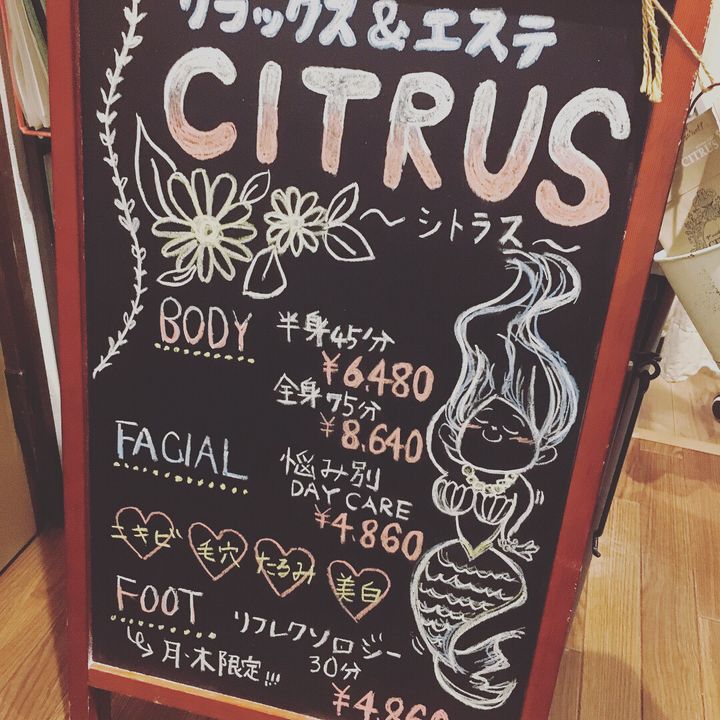 リラックス&エステ
CITRUS
～シトラス～
BODY
半身45分
¥6,480
全身75分
¥8,640
FACIAL
悩み別
DAY CARE
¥4,860
ニキビ 毛穴 たるみ 美白
FOOT
リフレクソロジー
30分
月・木限定!!!
¥4,860
CITRUS